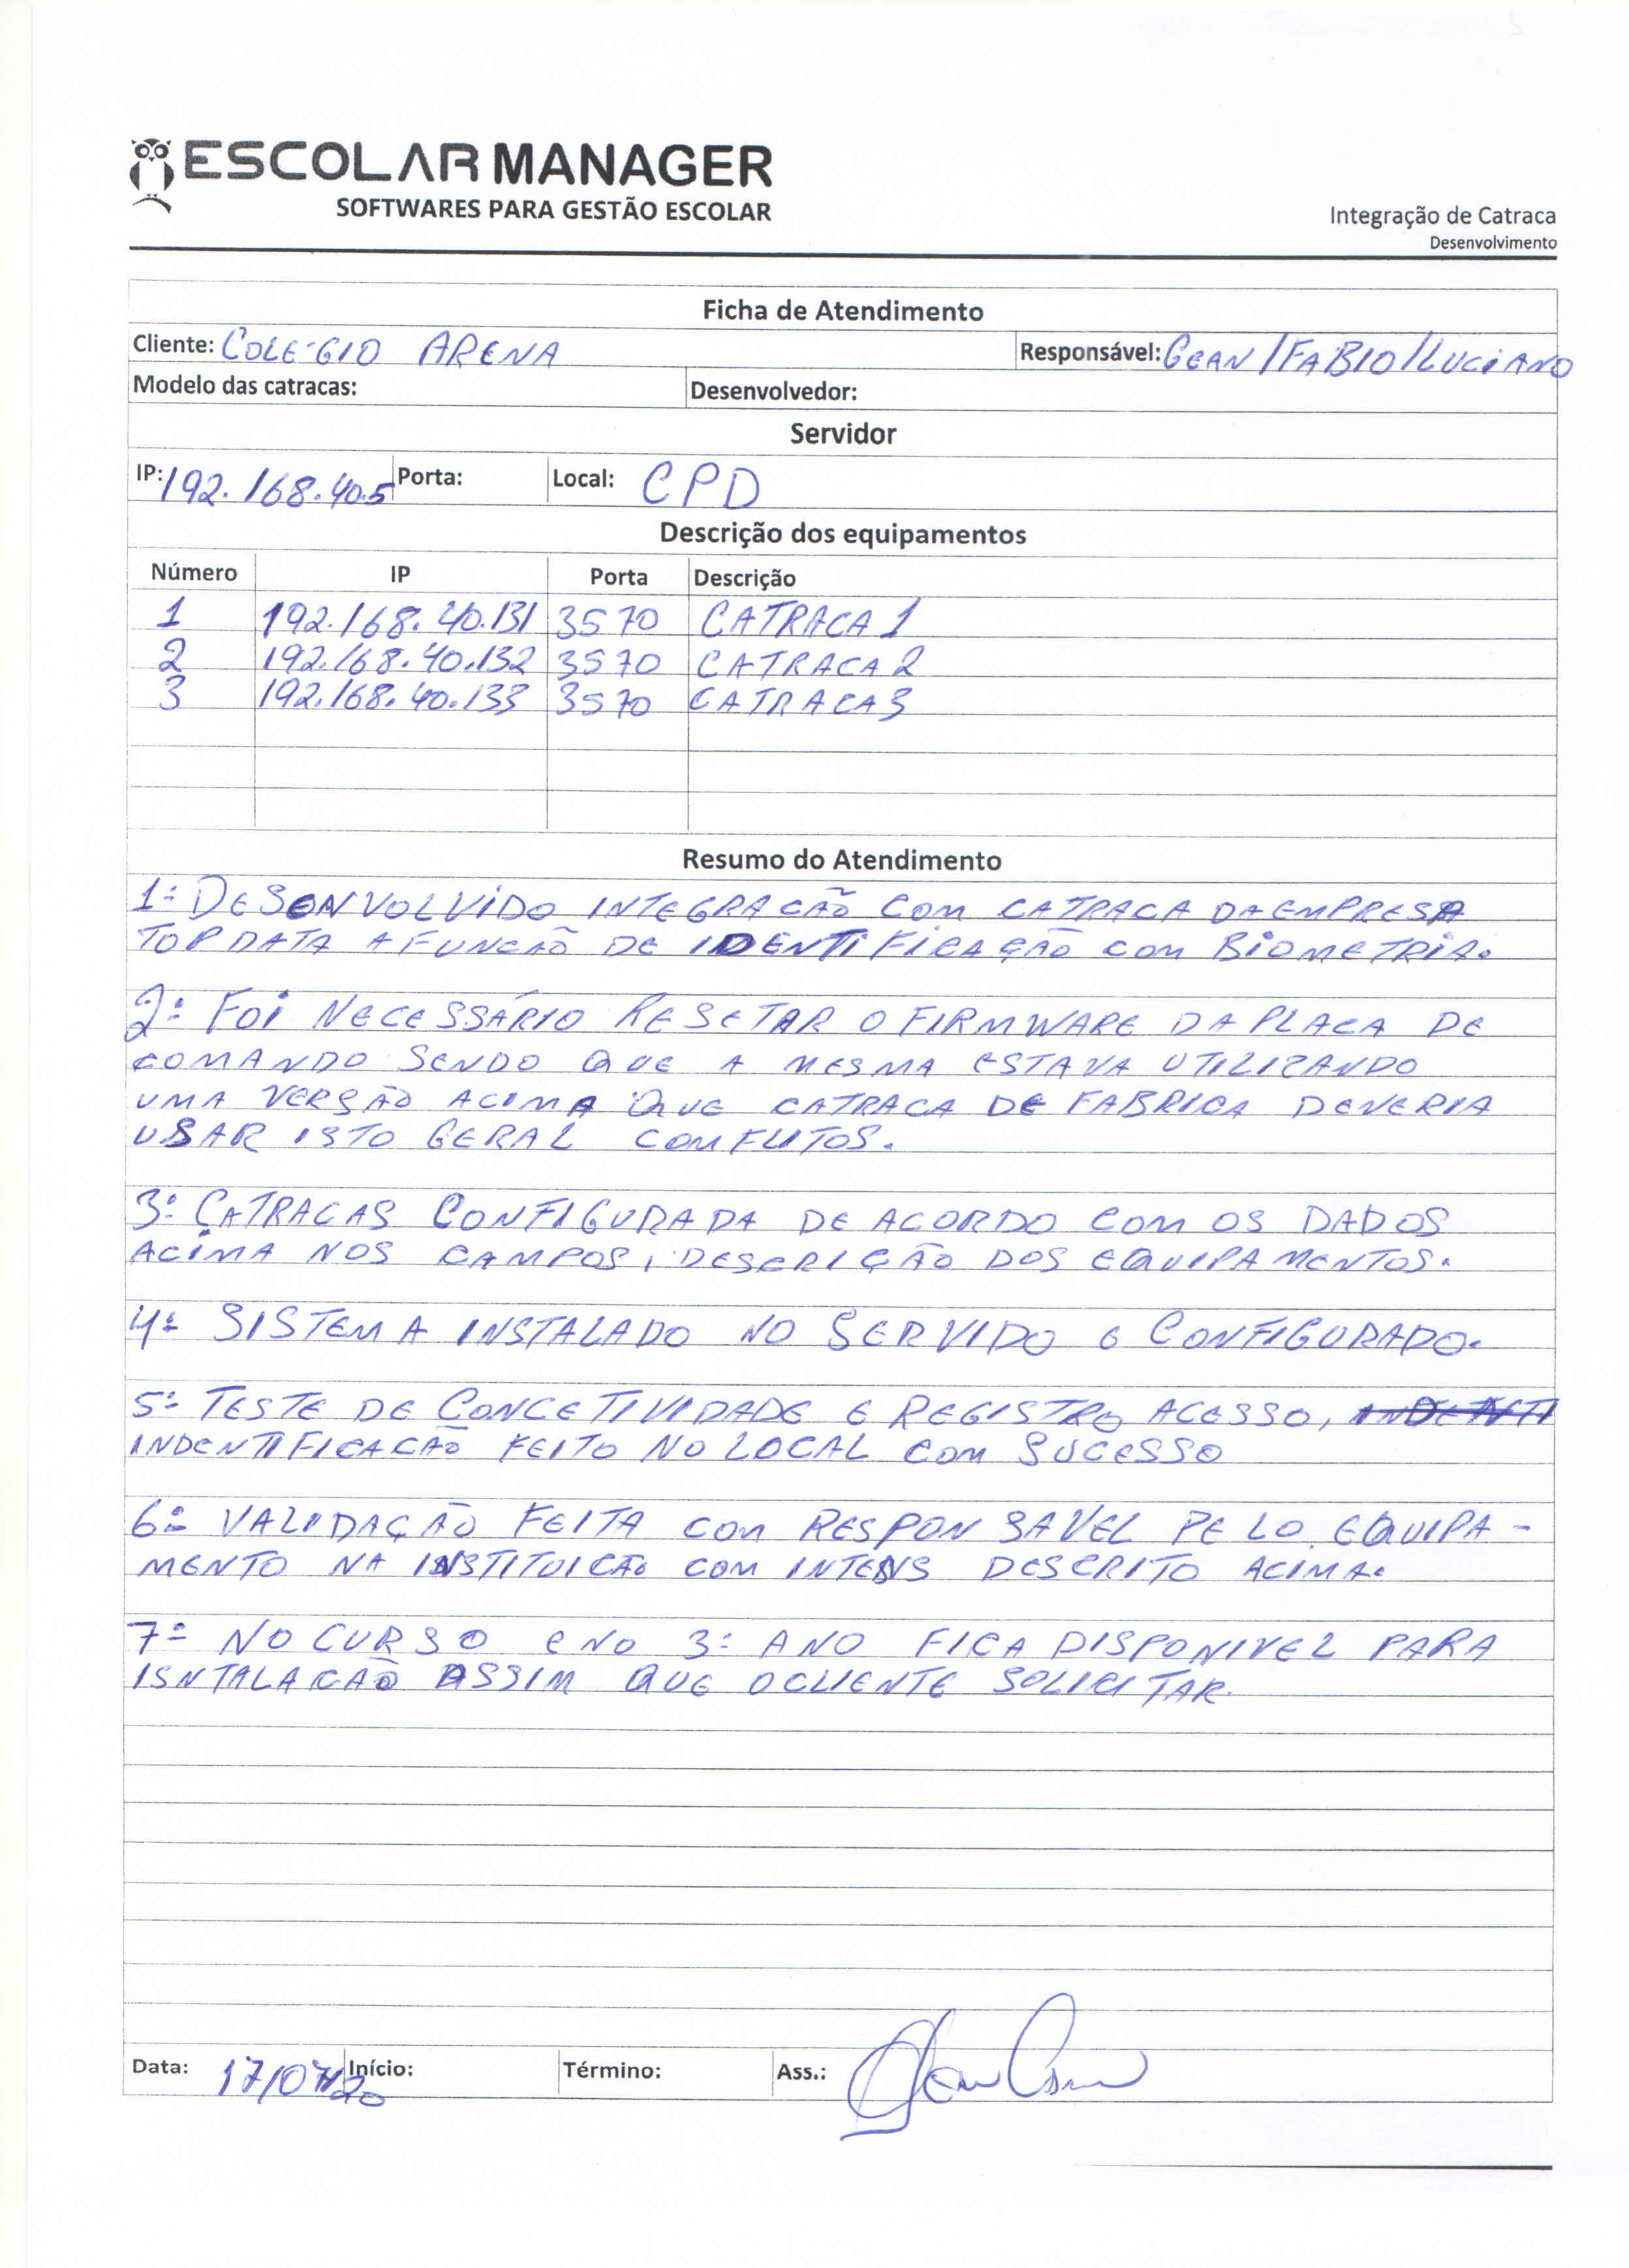 ESCOLAR MANAGER
SOFTWARES PARA GESTÃO ESCOLAR
Integração de Catraca
Desenvolvimento
Ficha de Atendimento
Cliente: COLÉGIO ARENA Responsável: GEAN/FABIO/LUCIANO
Modelo das catracas: Desenvolvedor:
Servidor
IP: 192.168.40.5 Porta: Local: CPD
Descrição dos equipamentos
Número IP Porta Descrição
1 192.168.40.131 3570 CATRACA 1
2 192.168.40.132 3570 CATRACA 2
3 192.168.40.133 3570 CATRACA 3
Resumo do Atendimento
1º DESENVOLVIDO INTEGRACÃO COM CATRACA DA EMPRESA
TOPDATA A FUNCÃO DE IDENTIFICAÇÃO COM BIOMETRIA.
2º FOI NECESSÁRIO RESETAR O FIRMWARE DA PLACA DE
COMANDO SENDO QUE A MESMA ESTAVA UTILIZANDO
UMA VERSÃO ACIMA QUE CATRACA DE FABRICA DEVERIA
USAR ISTO GERAL COMFLITOS.
3º CATRACAS CONFIGURADA DE ACORDO COM OS DADOS
ACIMA NOS CAMPOS, DESCRIÇÃO DOS EQUIPAMENTOS.
4º SISTEMA INSTALADO NO SERVIDO E CONFIGURADO.
5º TESTE DE CONCETIVIDADE E REGISTRO ACESSO, INDENTI
INDENTIFICACÃO FEITO NO LOCAL COM SUCESSO
6º VALIDAÇÃO FEITA COM RESPONSAVEL PELO EQUIPA-
MENTO NA INSTITUICÃO COM INTENS DESCRITO ACIMA.
7º NO CURSO E NO 3º ANO FICA DISPONIVEL PARA
ISNTALACÃO ASSIM QUE O CLIENTE SOLICITAR.
Data: 17/07/20 Início: Término: Ass.: